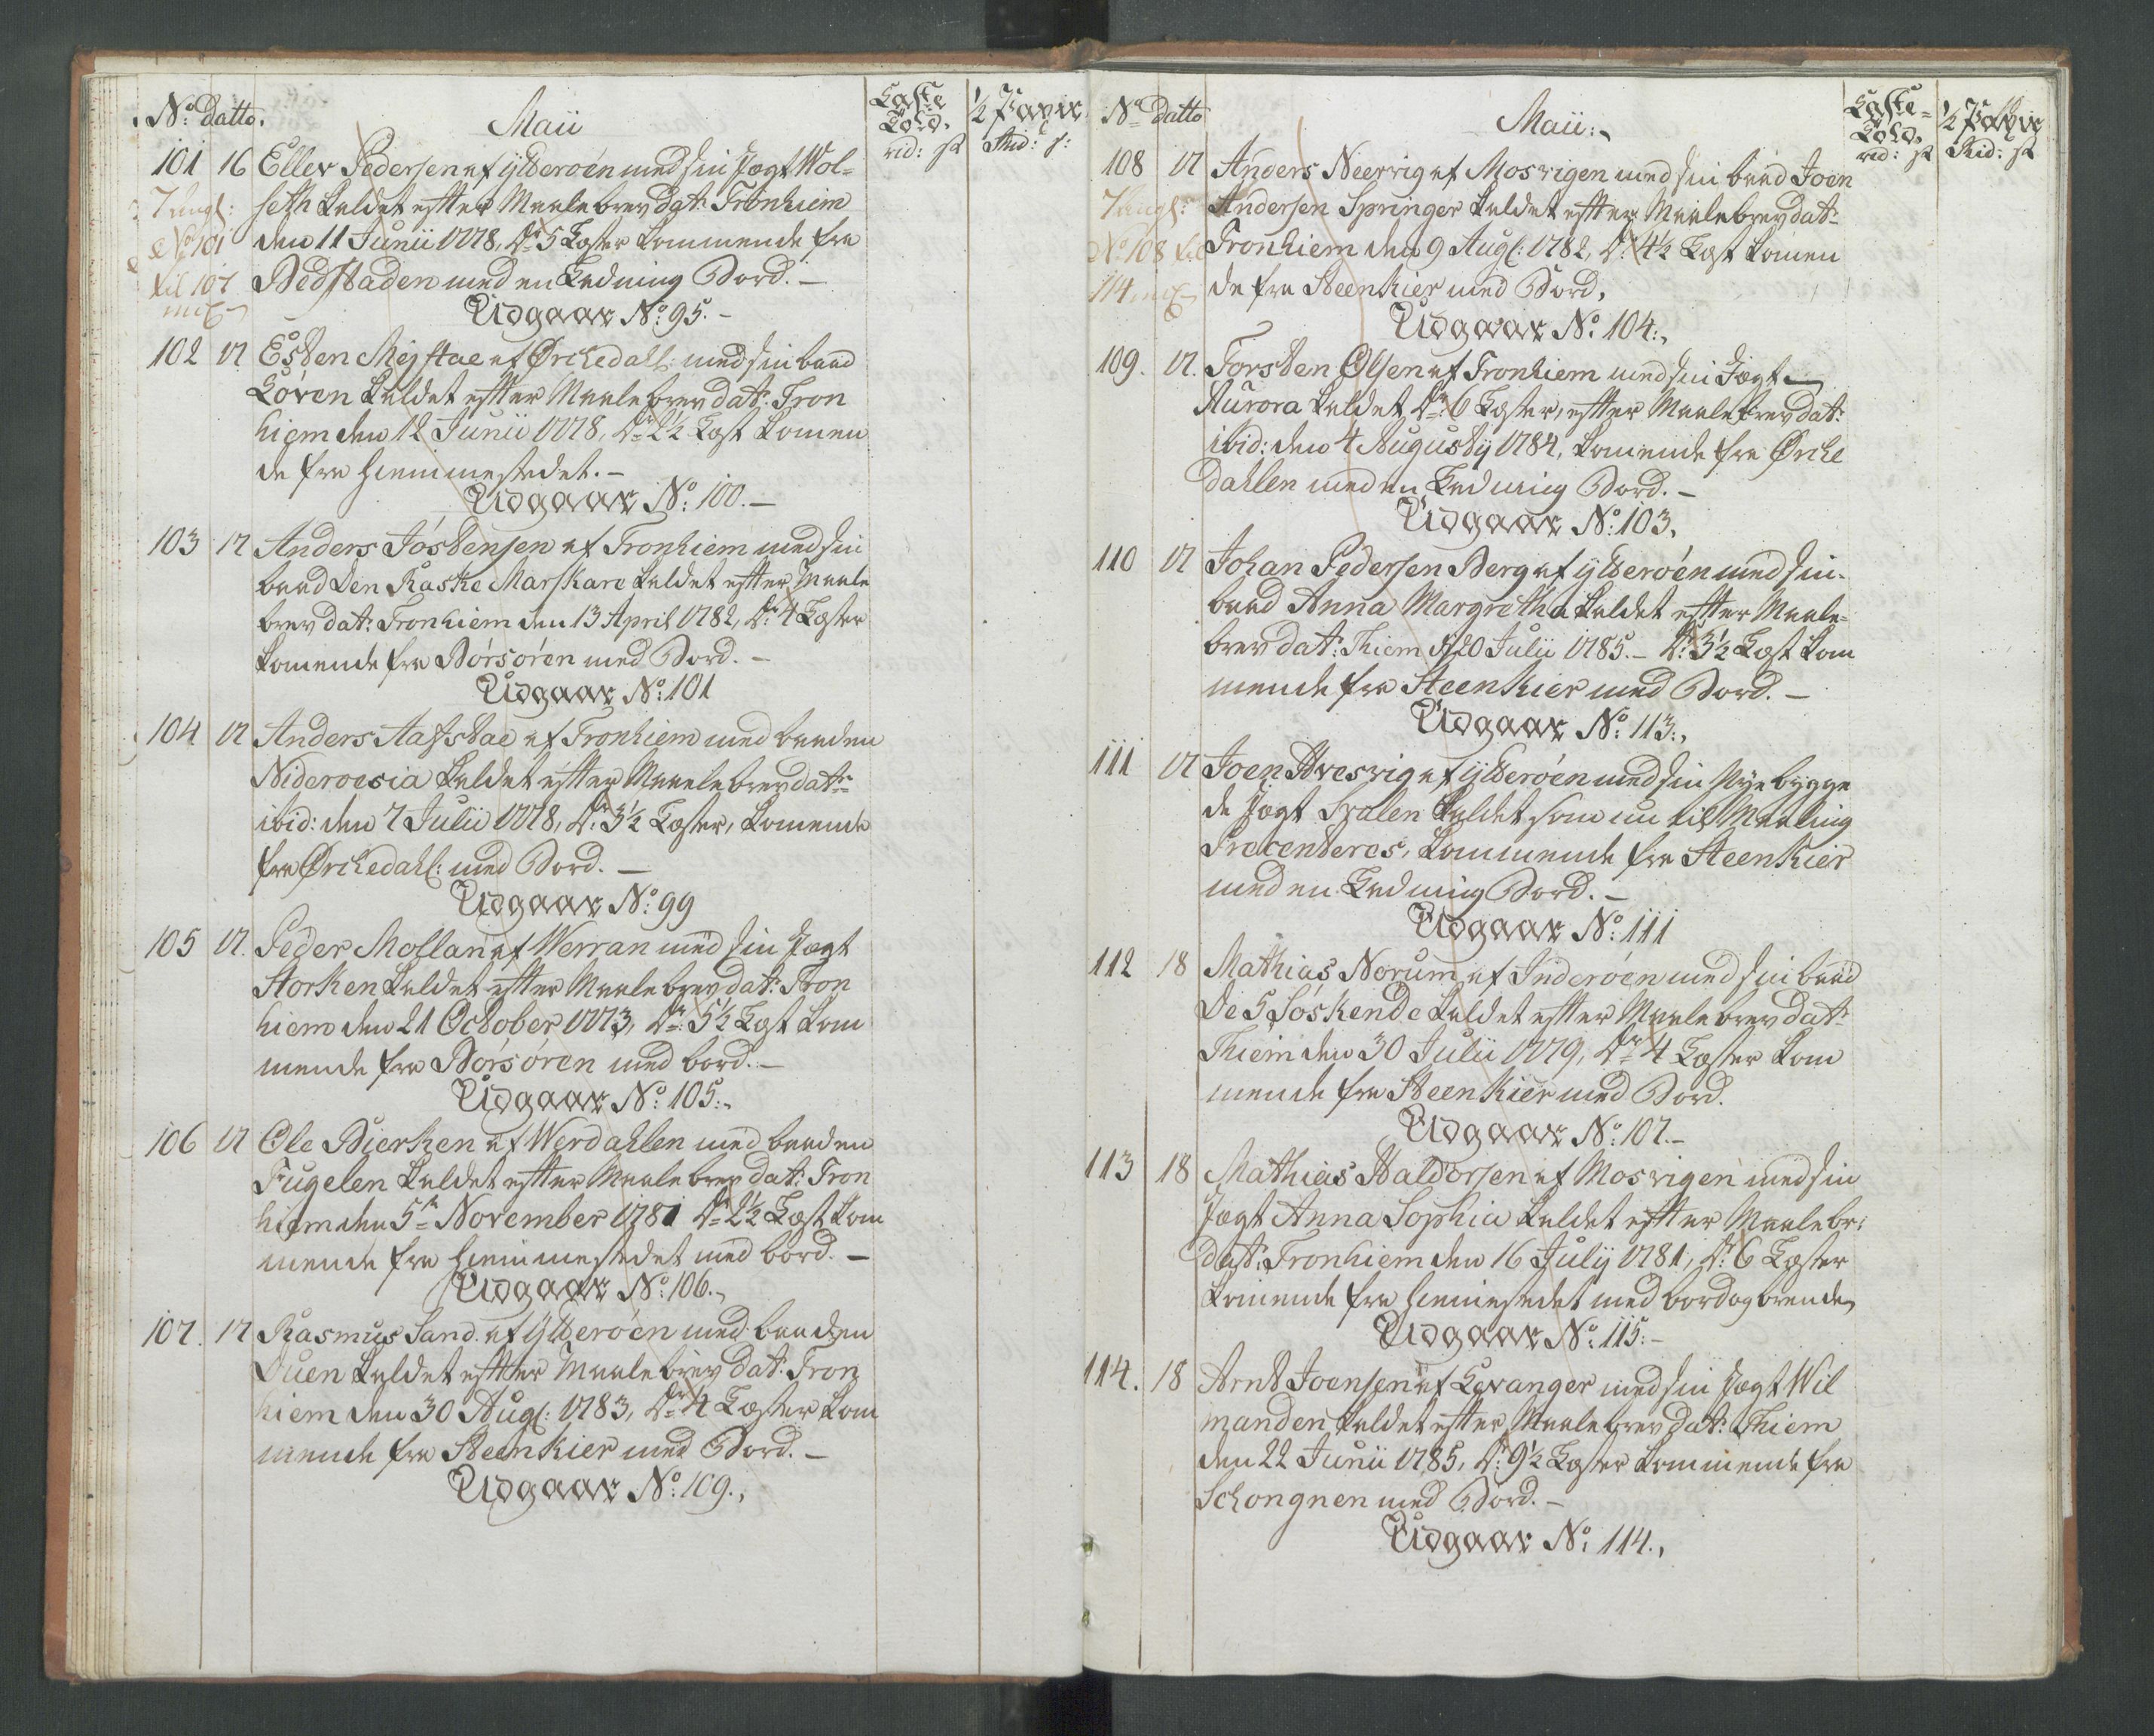 No: datto.
Maii
Læste Told.
rd: s
½ Part
Rd: s:
101 16 Eller Pedersen af Ytterøen med sin Jægt Wol-
seth kaldet efter Maalebrev dat: Tronhiem
den 11 Junii 1778, Dr: 5 Læster kommende fra
Bedstaden med en Ladning Bord. –
No 101
til 107
Udgaar No: 95. –
102 17 Esten Mejstae af Ørchedahl: med sin baad
Løven kaldet efter Maalebrev dat: Tron
hiem den 12 Junii 1778, Dr: 2½ Læst komen
de fra hiemmestedet. –
Udgaar No: 100. –
103 17 Anders Jóstensen af Tronhiem med sin
baad Den Raske Marskare kaldet efter Maale
brev dat: Tronhiem den 13 April 1782, Dr: 4 Læster
komende fra Börsören med Bord. –
Udgaar No: 101
104 17 Anders Aafstae af Tronhiem med baaden
Nideroesia kaldet efter Maalebrev datr:
ibid: den 7 Julii 1778, Dr: 3½ Læster, komende
fra Ørchedahl: med Bord. –
Udgaar No: 99
105 17. Peder Mollan af Werran med sin Jægt
Storken kaldet efter Maalebrev dat: Tron
hiem den 21 October 1773, Dr: 5½ Læst kom
mende fra Börsören med bord. –
Udgaar No: 105.
106 17 Ole Bierken af Werdahlen med baaden
Fugelen kaldet efter Maalebrev dat: Tron
hiem den 5te November 1781 Dr: 2½ Læst kom
mende fra hiemmestedet med bord. –
Udgaar No: 106.
107. 17 Rasmus Sand af Ytterøen med baaden
Duen kaldet efter Maalebrev dat: Tron
hiem den 30 Aug: 1783, Dr: 4 Læster kom
mende fra Steenkier med Bord. –
Udgaar No: 109.
No datto
Maii:
Læste-
Told.
rd: s
½ Part
Rd: s
108 17 Anders Neervig af Mosvigen med sin baad Joen
Andersen Springer kaldet efter Maalebrev dat:
Tronhiem den 9 Aug: 1782, Dr: 4½ Læst komen
de fra Steenkier med Bord.
No 108 til
114
Udgaar No: 104.
109. 17. Torsten Olsen af Tronhiem med sin Jægt
Aurora kaldet Dr: 6 Læster, efter Maalebrev dat:
ibid: den 4 Augusty 1784, komende fra Ørche
dahlen med en Ladning Bord. –
Udgaar No: 103.
110 17 Johan Pedersen Berg af Ytterøen med sin
baad Anna Margretha kaldet efter Maale-
brev dat: Thiem d 20 Julii 1785. – Dr: 3½ Læst kom
mende fra Steenkier med Bord. –
Udgaar No: 113.
111 17 Joen Hvesvig af Ytterøen med sin Nye bygge
de Jægt Svalen kaldet som nu til Maaling
Præcenteres, kommende fra Steenkier
med en Ladning Bord. –
Udgaar No: 111
112 18 Mathias Norum af Inderøen med sin baad
De 5 Söskende kaldet efter Maalebrev dat:
Thiem den 30 Julii 1779, Dr: 4 Læster kom
mende fra Steenkier med Bord.
Udgaar No: 107. –
113 18 Mathias Haldorsen af Mosvigen med sin
Jægt Anna Sophia kaldet efter Maalebr:
dat: Tronhiem den 16 July 1781, Dr: 6 Læster
komende fra hiemestedet med bord og brende
Udgaar No: 115. –
114. 18 Arnt Joensen af Levanger med sin Jægt Wil
manden kaldet efter Maalebrev dat: Thiem
den 22 Junii 1785, Dr: 9½ Læster kommende fra
Schongnen med Bord. –
Udgaar No: 114.